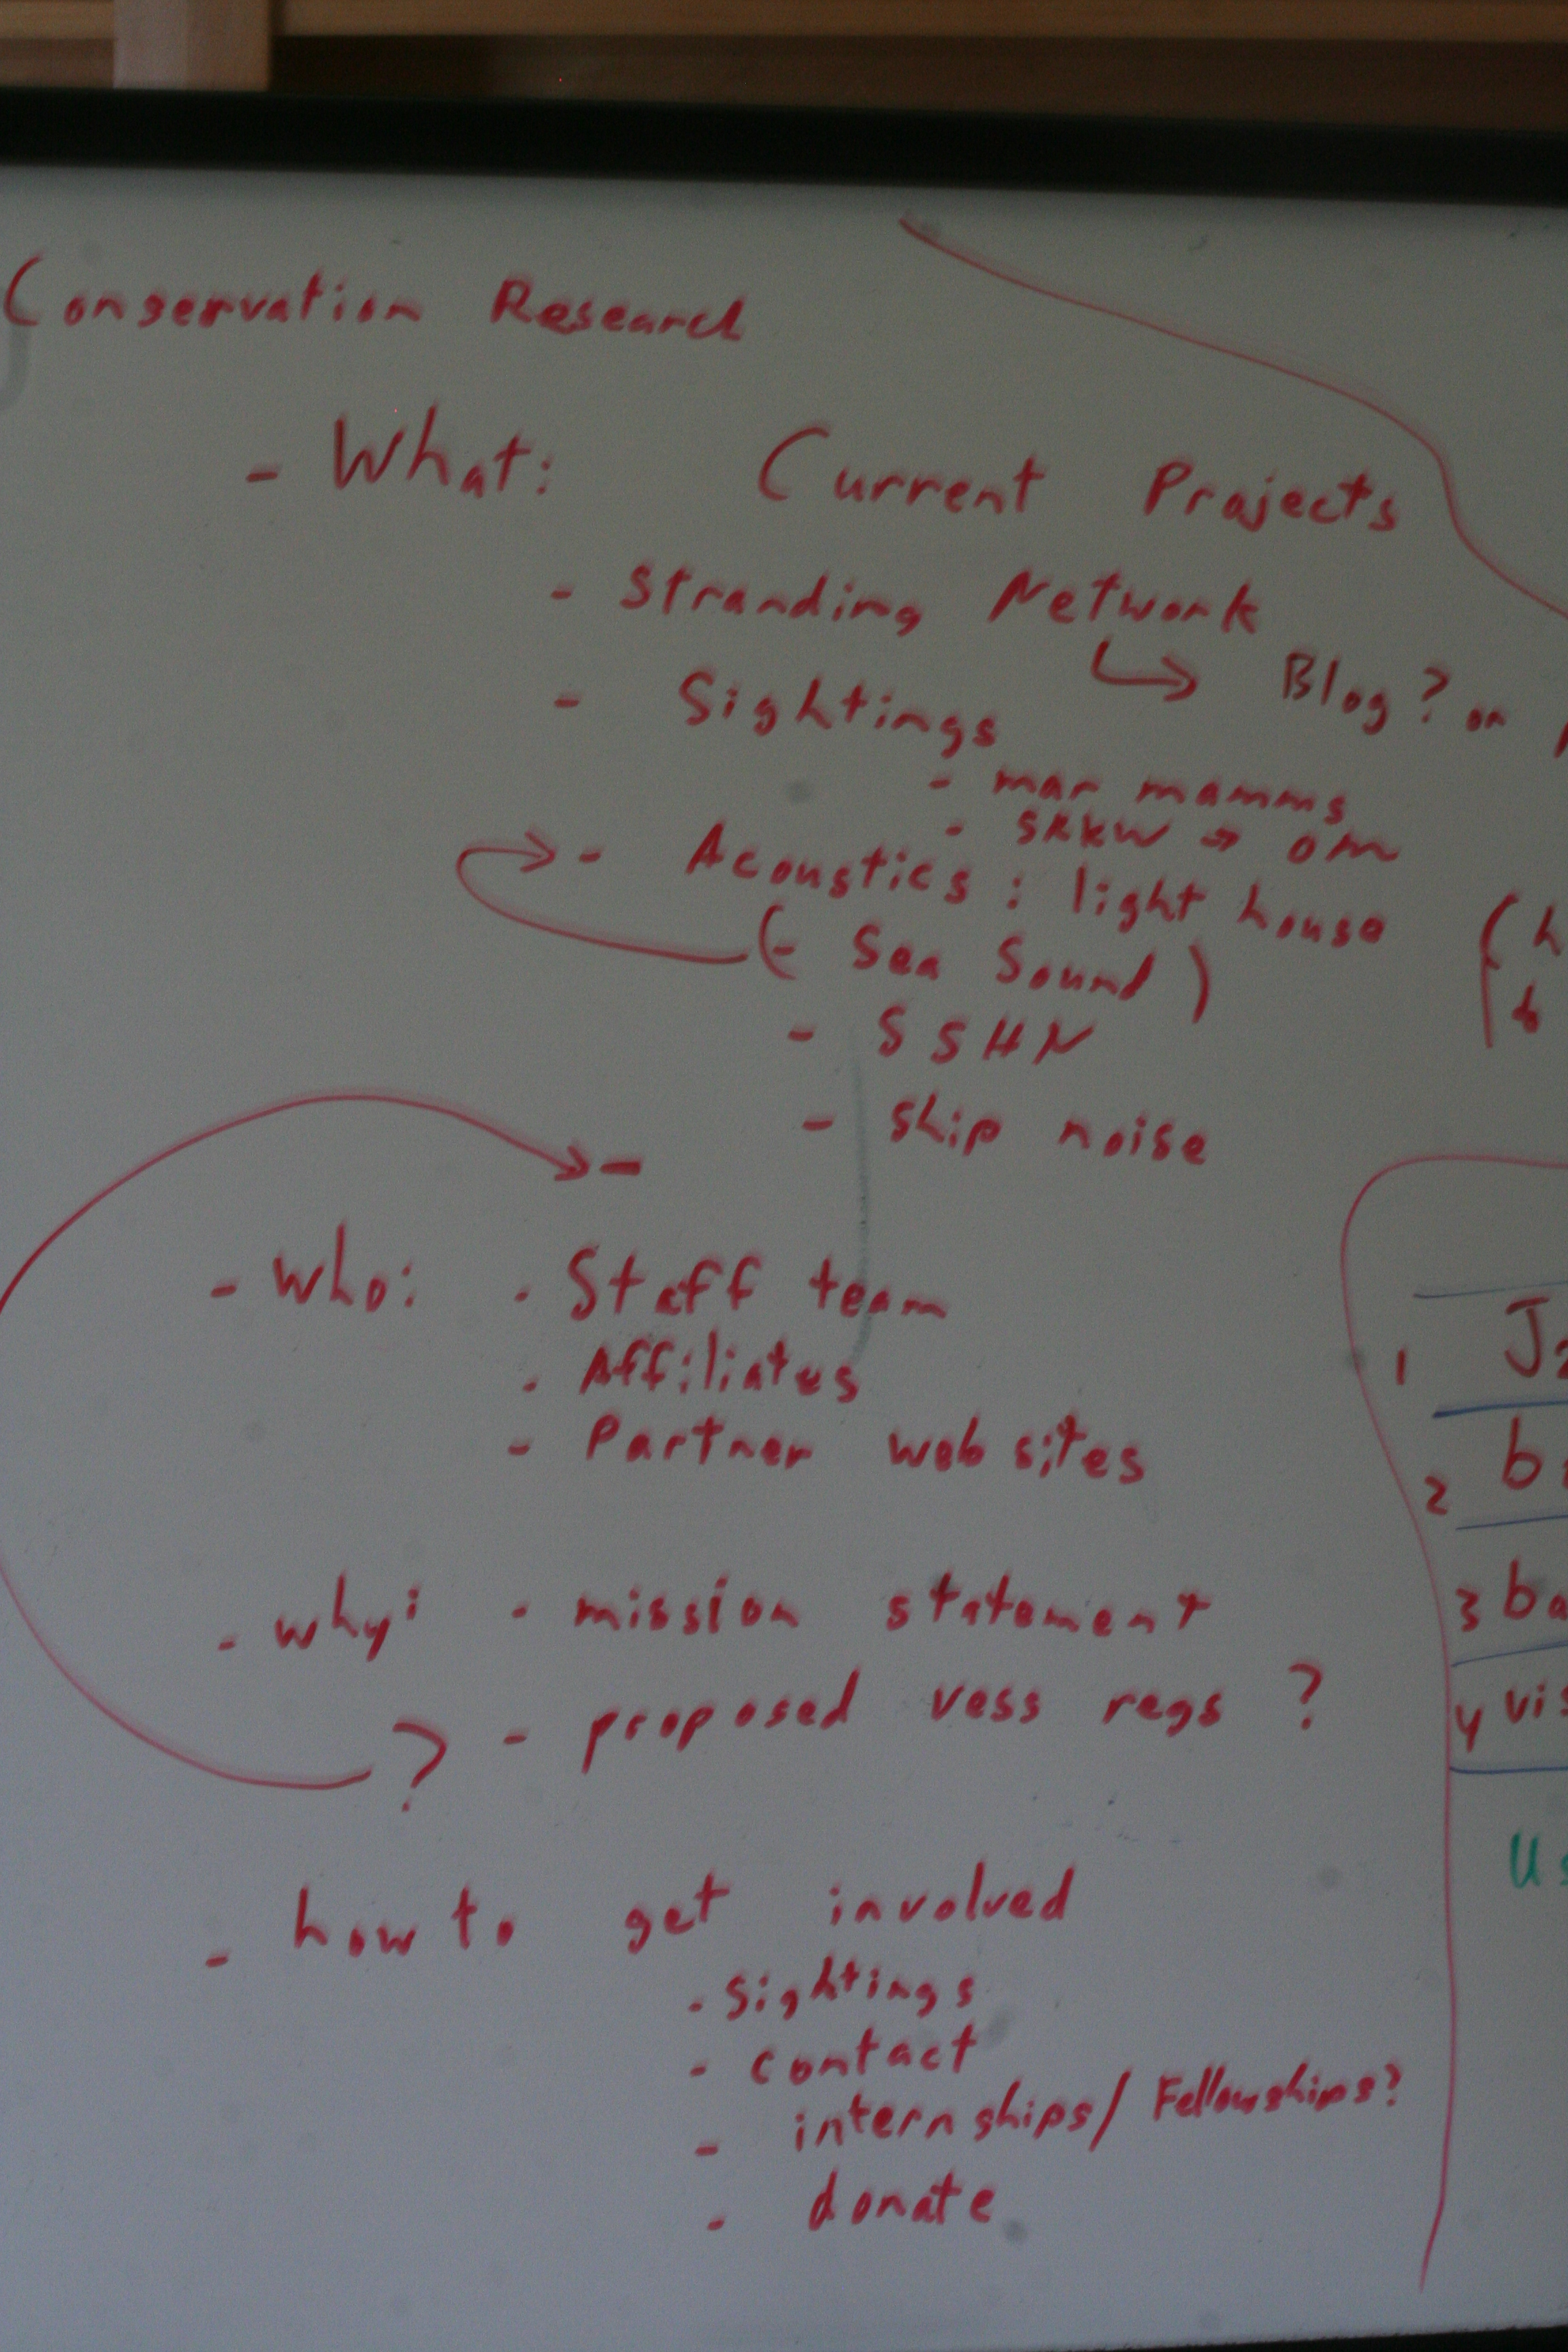 Conservation Research
- What: Current Projects
- Stranding Network
↳ Blog? on
- Sightings
- mar mamms
- SRKW → om
- Acoustics: light house
(- Sea Sound)
- SSHN
- ship noise
-
- Who: - Staff team
- Affiliates
- Partner web sites
- why: - mission statement
? - proposed vess regs ?
- how to get involved
- sightings
- contact
- internships/ Fellowships?
- donate
1
2
3
4